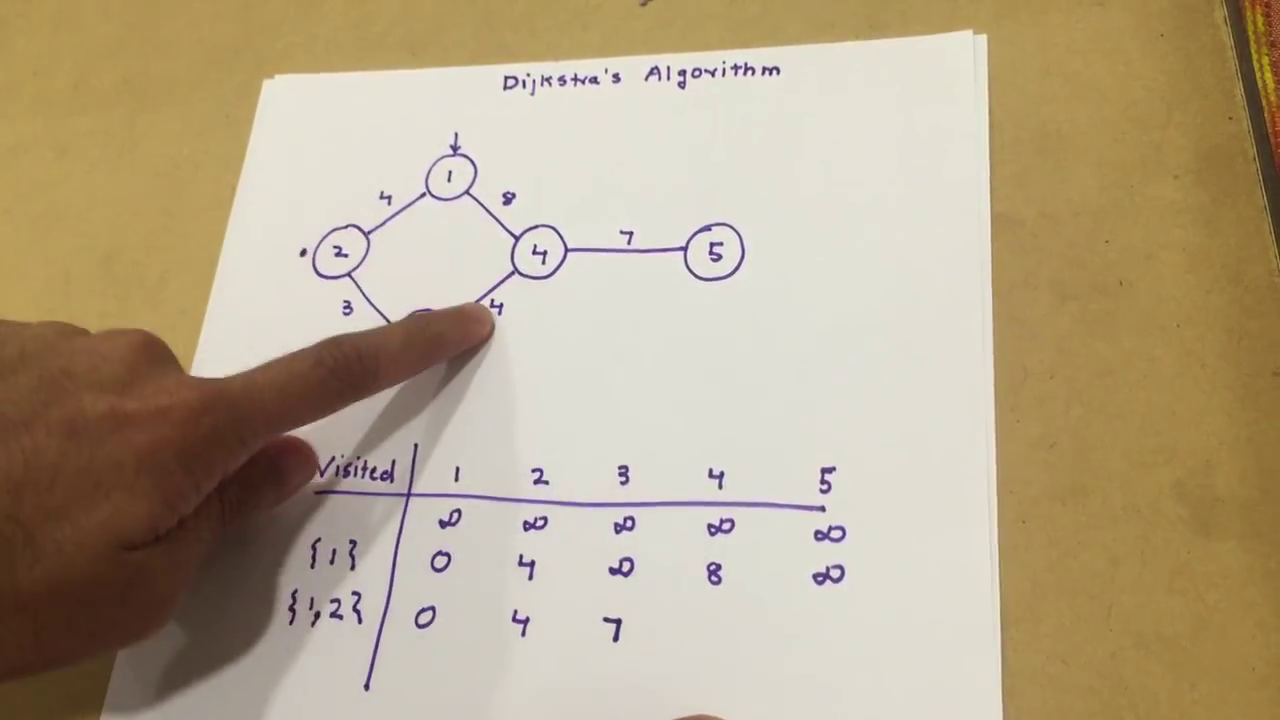 Dijkstra's Algorithm
1
4 8
2 4 7 5
3 4
Visited 1 2 3 4 5
∞ ∞ ∞ ∞ ∞
{1} 0 4 ∞ 8 ∞
{1,2} 0 4 7